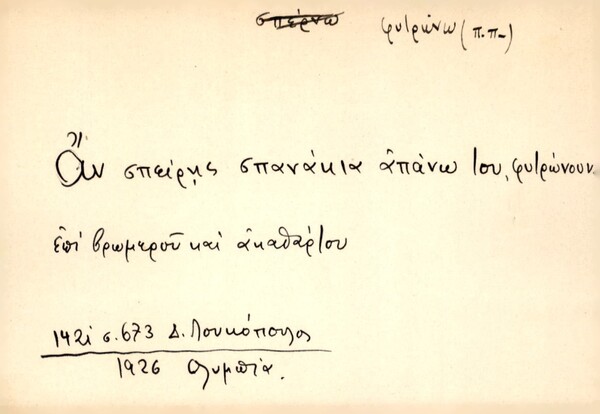 σπέρνω φυτρώνω (π.π-)
Ἂν σπείρῃς σπανάκια ἀπάνω του, φυτρώνουν.
ἐπί βρωμεροῦ καί ἀκαθάρτου
1421 σ. 673 Δ. Λουκόπουλος
1926 Ολυμπία.